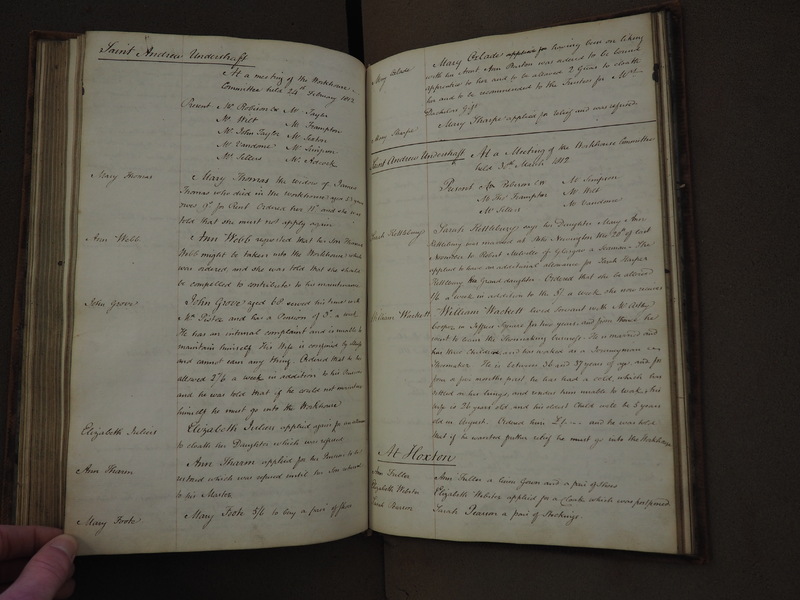 Saint Andrew Undershaft
At a meeting of the Workhouse
Committee held 24th February 1812
Present Mr Robinson Mr Taylor
Mr Witt Mr Frampton
Mr John Taylor Mr Sexton
Mr Vandome Mr Simpson
Mr Sellers Mr Adcock
Mary Thomas Mary Thomas the widow of James
Thomas who died in the Workhouse aged
owes for Rent Ordered her and she was
told that she must not apply again
Ann Webb Ann Webb requested that her Son Thomas
Webb might be taken into the Workhouse which
was ordered and she was told that she should
be compelled to contribute to his maintenance
John Grove John Grove aged 68 served his time with
Mr and has a Pension of a week
He has an internal complaint and is unable to
maintain himself His Wife is
and cannot earn any thing. Ordered that he be
allowed 3/6 a week in addition to his Pension
and he was told that if he could not maintain
himself he must go into the Workhouse
Elizabeth Julien Elizabeth Julien applied again for an allowance
to cloath her Daughter which was refused
Ann Thurm Ann Thurm applied for her Pension to be
restored which was refused until her Son returned
to his Master
Mary Foote Mary Foote 5/6 to buy a pair of Shoes
Mary Oxlade Mary Oxlade applied for having been on liking
with her Aunt Ann was ordered to be bound
apprentice to her and to be allowed 2 Guineas to cloath
her and to be recommended to the Trustees for Mrs
gift
Mary Tharpe Mary Tharpe applied for relief and was refused
Saint Andrew Undershaft At a Meeting of the Workhouse Committee
held 30th March 1812
Present Mr Robinson Mr Simpson
Mr Thos Frampton Mr Witt
Mr Sellers Mr Vandome
Sarah Kettlebury Sarah Kettlebury says her Daughter Mary Ann
Kettlebury was married at Stoke Newington the 28th of last
November to Robert of Glasgow a Seaman. She
applied to have an additional allowance for
Kettlebury her Grand daughter Ordered that she be allowed
1/6 a week in addition to the 3/ a week she now receives
William Wackett William Wackett lived Servant with Mr
Cooper, in Square for two years, and from thence he
went to learn the Shoemaking business. He is married and
has three Children and has worked as a Journeyman
Shoemaker. He is between 36 and 37 years of age, and for
four or five months past, he has had a cold, which has
settled on his lungs, and renders him unable to work, his
wife is 26 years old and his eldest Child will be 5 years
old in August. Ordered him £1 and he was told
that if he wanted further relief he must go into the Workhouse
At Hoxton
Ann Fuller Ann Fuller a linen Gown and a pair of Shoes
Elizabeth Webster Elizabeth Webster applied for a Cloak which was postponed
Sarah Pearson Sarah Pearson a pair of Stockings.